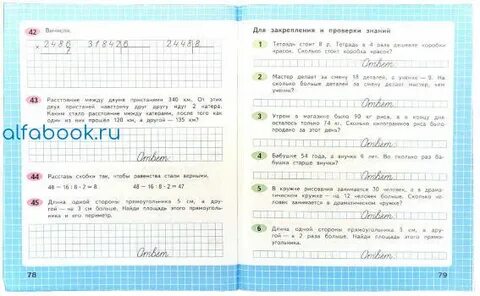 42 Вычисли.
× 2486 7 318426 24488
43 Расстояние между двумя пристанями 340 км. От этих
двух пристаней навстречу друг другу идут 2 катера.
Каким стало расстояние между катерами, после того как
один из них прошёл 120 км, а другой — 135 км?
alfabook.ru
Ответ:
44 Расставь скобки так, чтобы равенства стали верными.
48 − 16 : 8 · 2 = 8 48 − 16 : 8 · 2 = 47
45 Длина одной стороны прямоугольника 5 см, а дру-
гой — на 3 см больше. Найди площадь этого прямоуголь-
ника и его периметр.
Ответ:
78
Для закрепления и проверки знаний
1 Тетрадь стоит 8 р. Тетрадь в 4 раза дешевле коробки
красок. Сколько стоит коробка красок?
Ответ:
2 Мастер делает за смену 18 деталей, а ученик — 9. На
сколько больше деталей делает за смену мастер, чем
ученик?
Ответ:
3 Утром в магазине было 90 кг риса, а к концу дня
осталось только 74 кг. Сколько килограммов риса было
продано за этот день?
Ответ:
4 Бабушке 54 года, а внучке 6 лет. Во сколько раз ба-
бушка старше внучки?
Ответ:
5 В кружке рисования занимается 30 человек, а в драма-
тическом кружке — на 12 человек больше. Сколько че-
ловек занимается в драматическом кружке?
Ответ:
6 Длина одной стороны прямоугольника 3 см, а дру-
гой — в 2 раза больше. Найди площадь этого прямо-
угольника.
Ответ:
79